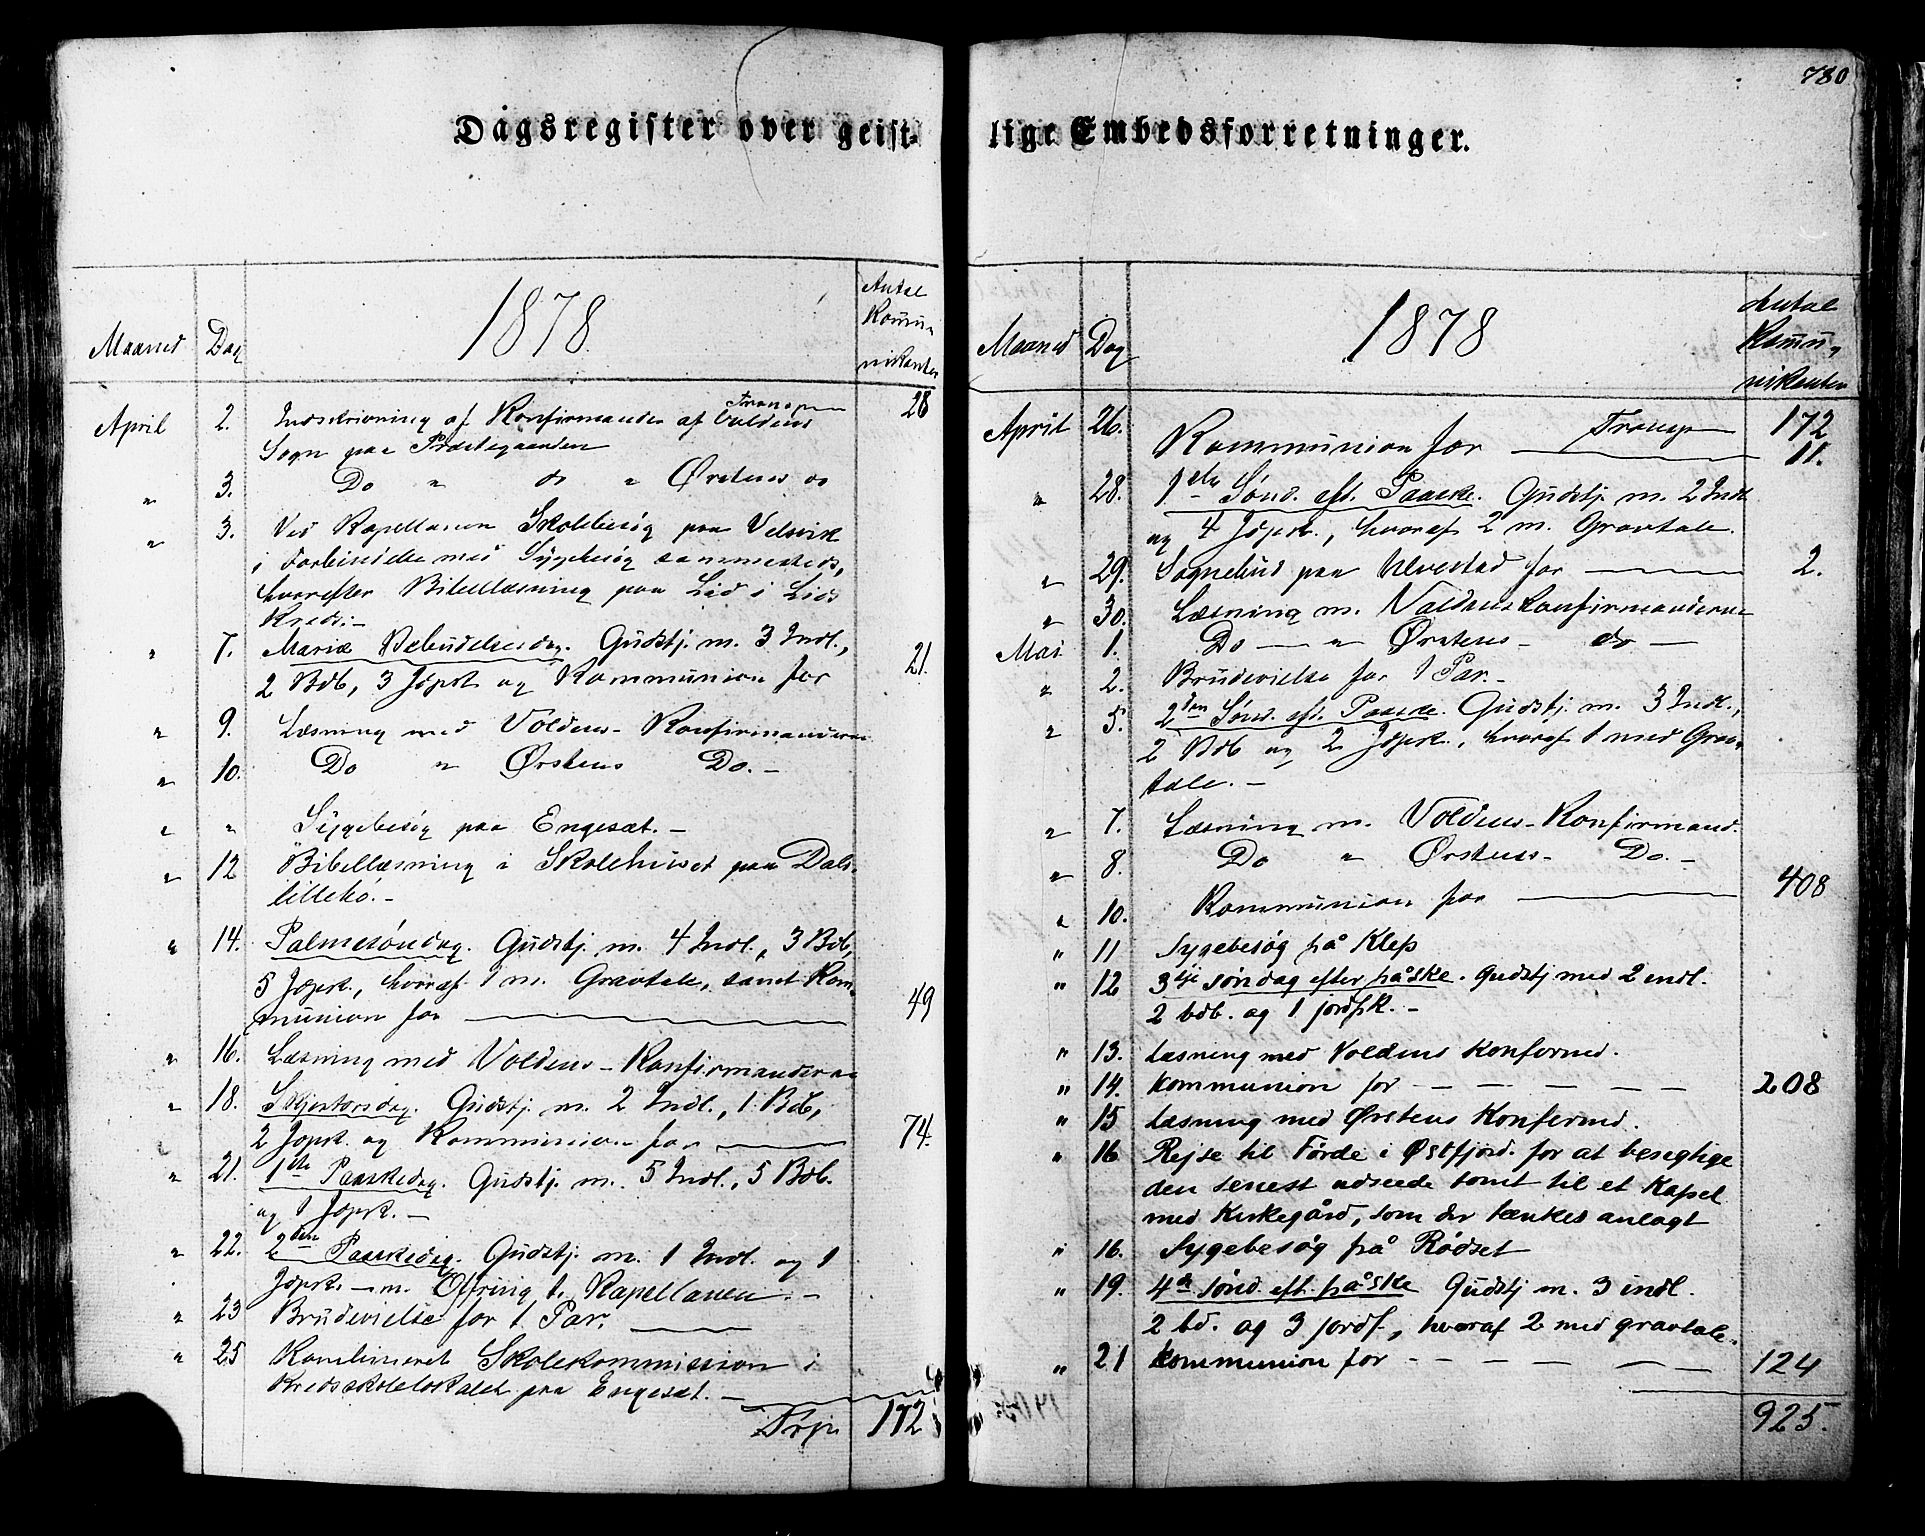 780
Dagsregister over geist-
lige Embedsforretninger.
Maaned Dag 1878 Antal
Kommu-
nikanter
Transp 28
April 2. Indskrivning af Konfirmander af Voldens
Sogn paa Præstegaarden
" 3. Do " do " Ørstens do
" 3. Ved Kapellanen Skolebesøg paa Velsvik
i Forbindelse med Sygebesøg sammesteds,
hvorefter Bibellæsning paa Lid i Lids
Kreds.-
" 7. Mariæ Bebudelsesdag. Gudstj. m. 3 Indl.,
2 Bdb, 3 Jdpsk. og Kommunion for 21.
" 9. Læsning med Voldens-Konfirmanderne
" 10. Do " Ørstens Do.-
" " Sygebesøg paa Engesæt.-
" 12 Bibellæsning i Skolehuset paa Dals-
lillebø.-
" 14. Palmesøndag. Gudstj. m. 4 Indl., 3 Bdb,
5 Jdpsk., hvoraf 1 m. Gravtale, samt Kom-
munion for 49
" 16. Læsning med Voldens-Konfirmanderne
" 18. Skjertorsdag. Gudstj. m. 2 Indl., 1 Bdb,
2 Jdpsk. og Kommunion for 74.
" 21. 1ste Paaskedag. Gudstj. m. 5 Indl., 5 Bdb.
og 1 Jdpsk.-
" 22. 2den Paaskedag. Gudstj. m. 1 Indl. og 1
Jdpsk. - m. Offring t. Kapellanen.-
" 23 Brudevielse for 1 Par.
" 25 Kombineret Skolekommission i
Kredsskolelokalet paa Engesæt.-
Trp 172
Maaned Dag 1878 Antal
Kommu-
nikanter
Transp 172
April 26. Kommunion for 11.
" 28. 1ste Sønd. eft. Paaske. Gudstj. m. 2 Indl.
og 4 Jdpsk., hvoraf 2 m. Gravtale.
" 29. Sognebud paa Ulvestad for 2.
" 30. Læsning m. Voldens Konfirmanderne
Mai 1. Do " Ørstens - do -
" 2. Brudevielse for 1 Par.-
" 5. 2den Sønd. eft. Paaske. Gudstj. m. 3 Indl.,
2 Bdb og 2 Jdpsk., hvoraf 1 med Grav-
tale.-
" 7. Læsning m. Voldens-Konfirmand.
" 8. Do " Ørstens- Do.-
" 10. Kommunion for 408
" 11 Sygebesøg på Klep
" 12 3dje søndag efter påske. Gudstj med 2 indl.
2 bdb. og 1 jordfk.-
" 13. Læsning med Voldens Konfermd.
" 14. Kommunion for - - - - - 208
" 15 Læsning med Ørstens Konfermd.
" 16 Rejse til Førde i Østfjord. for at besigtige
den senest udseede tomt til et Kapel
med Kirkegård, som der tænkes anlagt
" 16. Sygebesøg på Rødset
" 19. 4de sønd. eft. påske Gudstj m. 3 indl.
2 bd. og 3 jordf, hvoraf 2 med gravtale.
" 21 Kommunion for - - - - - 124
925.